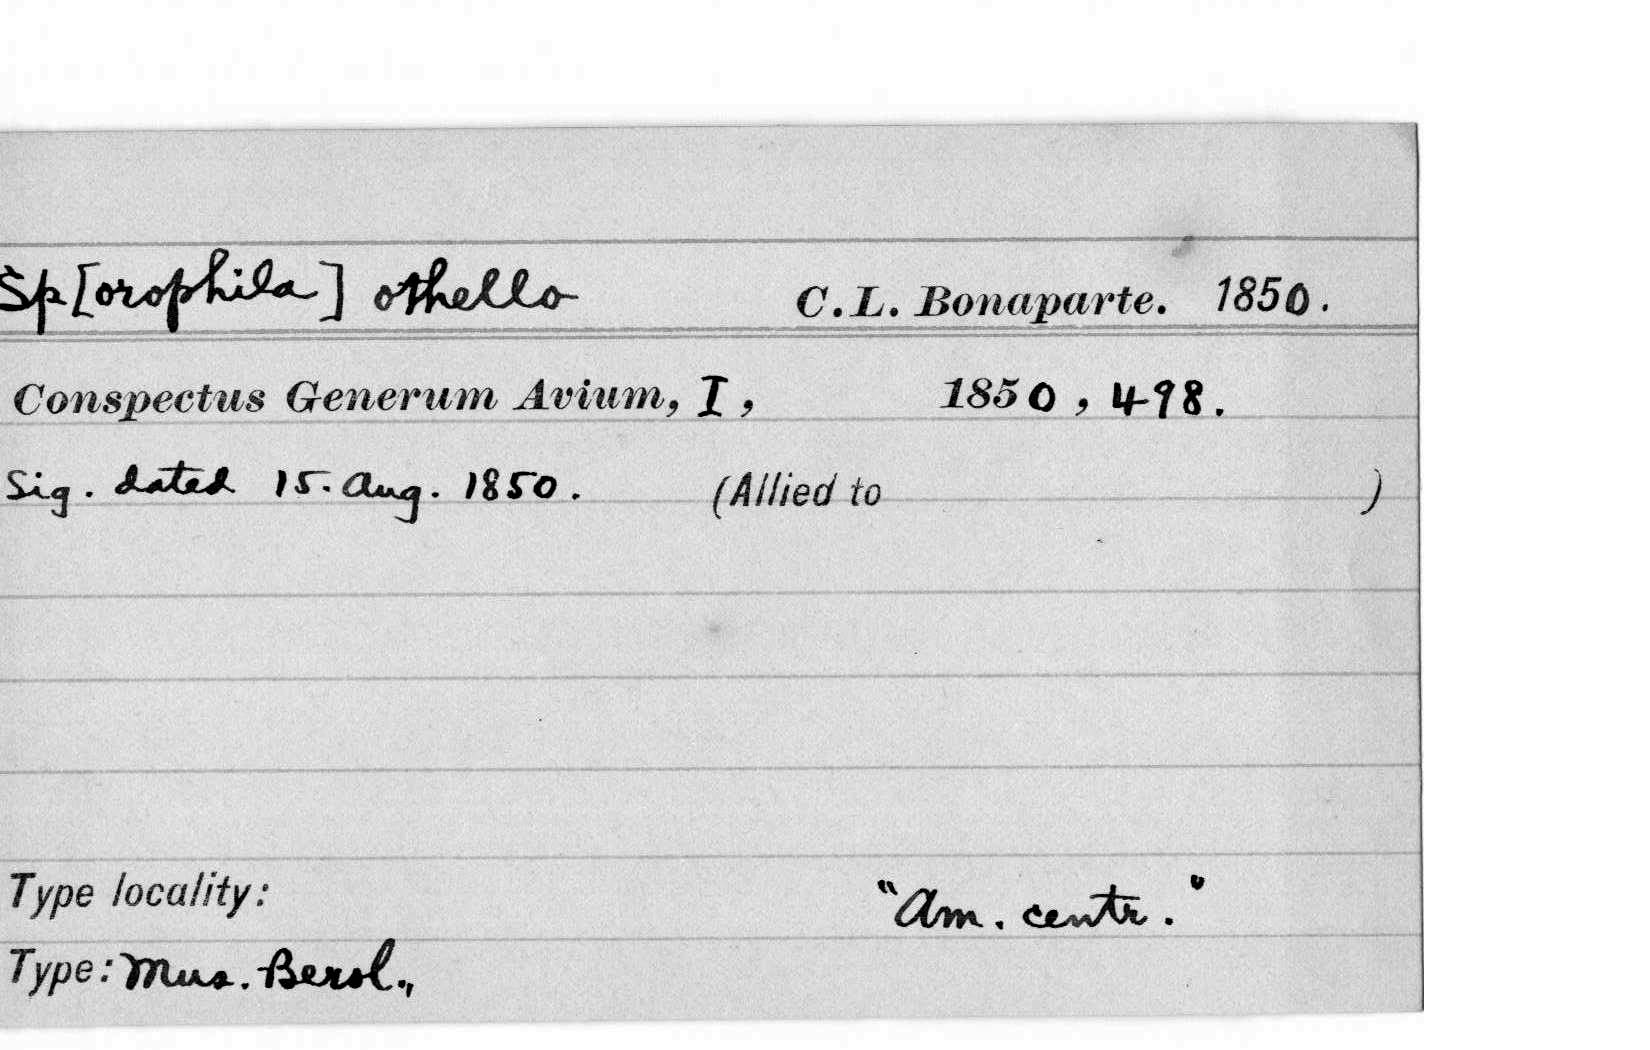 Sp[orophila] othello C.L. Bonaparte. 1850.
Conspectus Generum Avium, I, 1850, 498.
Sig. dated 15. Aug. 1850. (Allied to )
Type locality: "Am. centr."
Type: Mus. Berol.,